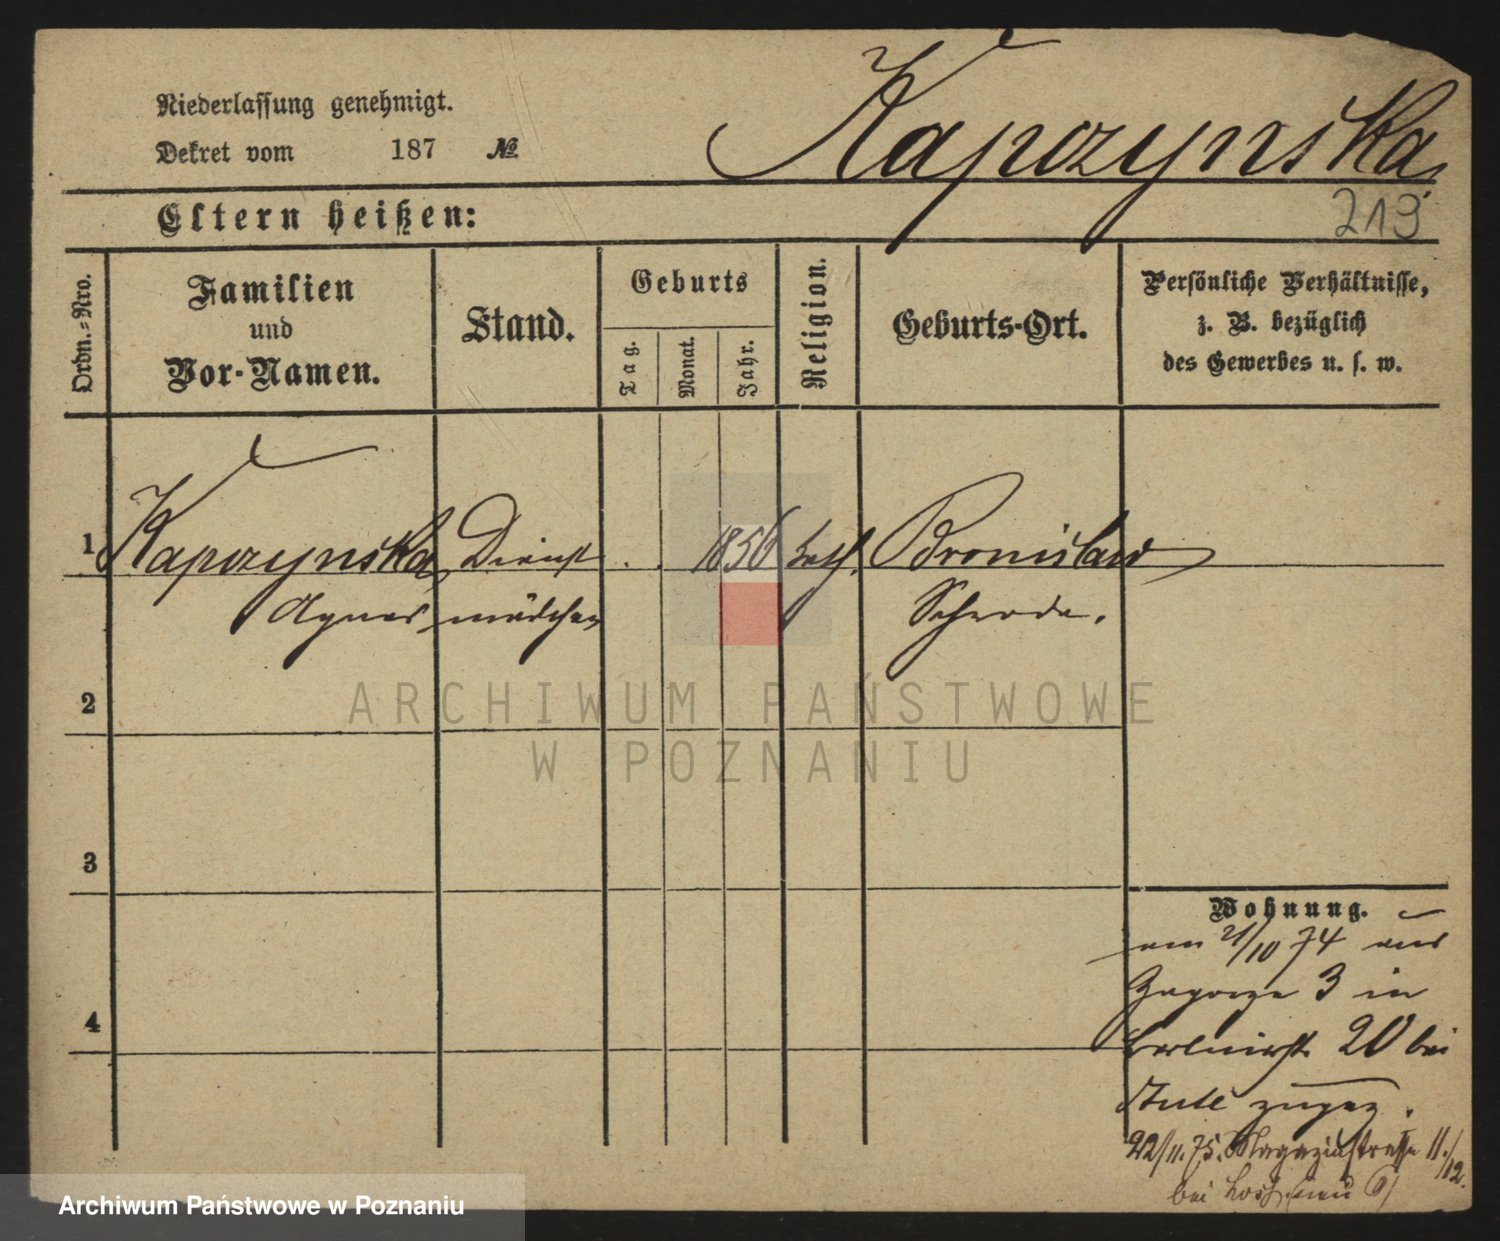 Kapczynska
Niederlassung genehmigt.
Dekret vom 187 №
213
Eltern heißen:
Ordn.=Nro.
Familien
und
Vor-Namen.
Stand.
Geburts
Tag.
Monat.
Jahr.
Religion.
Geburts-Ort.
Persönliche Verhältnisse,
z. B. bezüglich
des Gewerbes u. s. w.
1 Kapczynska Dienst . . 1856 kath. Bronislaw
Agnes mädchen Schroda.
2
3
4
Wohnung.
am 21/10 74 aus
Zagorze 3 in
Berlinerstr 20 bei
zugez.
22/11. 75. Magazinstrasse 11./12.
bei
ARCHIWUM PAŃSTWOWE
W POZNANIU
Archiwum Państwowe w Poznaniu